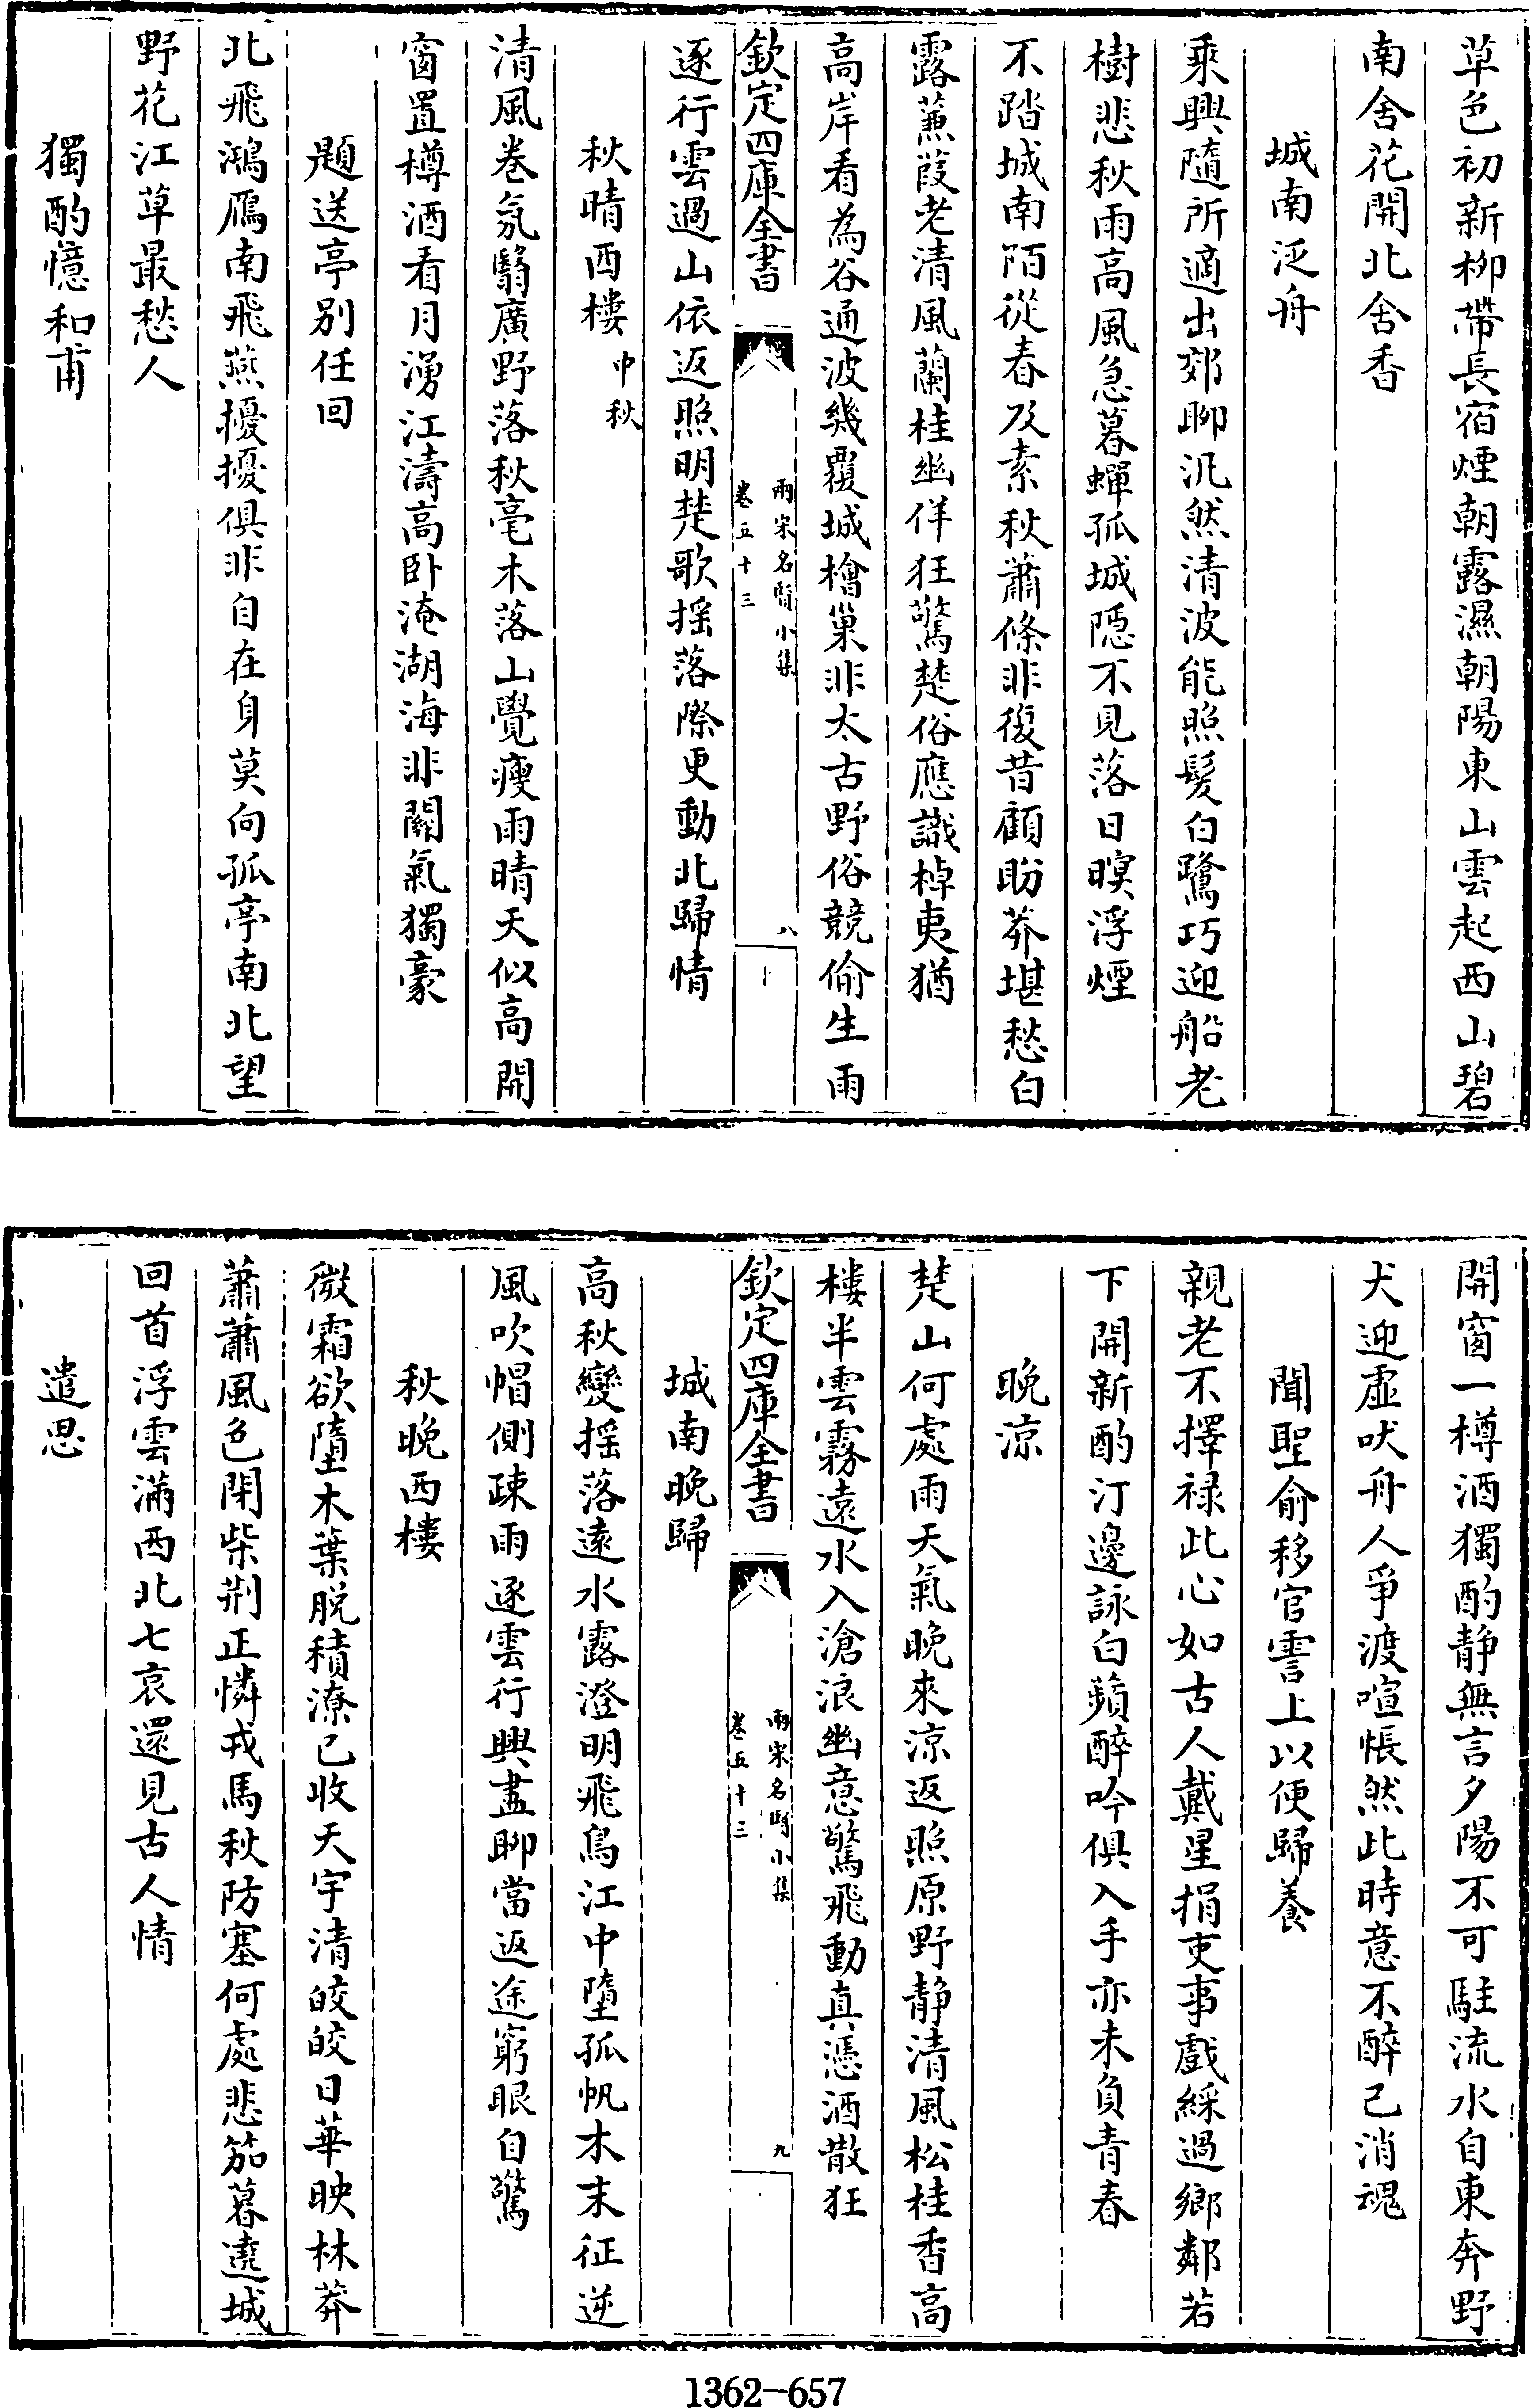 草色初新柳帶長宿煙朝露濕朝陽東山雲起西山碧
南舍花開北舍香
城南泛舟
乘興隨所適出郊聊汎然清波能照髮白鷺巧迎船老
樹悲秋雨高風急暮蟬孤城隠不見落日暝浮煙
不踏城南陌從春及素秋蕭條非復昔顧盼莽堪愁白
露蒹葭老清風蘭桂幽佯狂驚楚俗應識棹夷猶
高岸看為谷通波幾覆城檜巢非太古野俗競偷生雨
欽定四庫全書
兩宋名賢小集
卷五十三
八
逐行雲過山依返照明楚歌揺落際更動北歸情
秋晴西樓中秋
清風卷氛翳廣野落秋毫木落山覺瘦雨晴天似高開
窗置樽酒看月湧江濤高卧淹湖海非關氣獨豪
題送亭别任回
北飛鴻鴈南飛燕擾擾俱非自在身莫向孤亭南北望
野花江草最愁人
獨酌憶和甫
開窗一樽酒獨酌静無言夕陽不可駐流水自東奔野
犬迎虛吠舟人爭渡喧悵然此時意不醉已消魂
聞聖俞移官霅上以便歸養
親老不擇禄此心如古人戴星捐吏事戲綵過鄉鄰若
下開新酌汀邊詠白蘋醉吟俱入手亦未負青春
晚涼
楚山何處雨天氣晚來涼返照原野静清風松桂香高
樓半雲霧遠水入滄浪幽意驚飛動真憑酒散狂
欽定四庫全書
兩宋名賢小集
卷五十三
九
城南晚歸
高秋變揺落遠水露澄明飛鳥江中墮孤帆木末征逆
風吹帽側疎雨逐雲行興盡聊當返途窮眼自驚
秋晚西樓
微霜欲墮木葉脱積潦已收天宇清皎皎日華映林莽
蕭蕭風色閉柴荆正憐戎馬秋防塞何處悲笳暮遶城
回首浮雲滿西北七哀還見古人情
遣思
1362-657